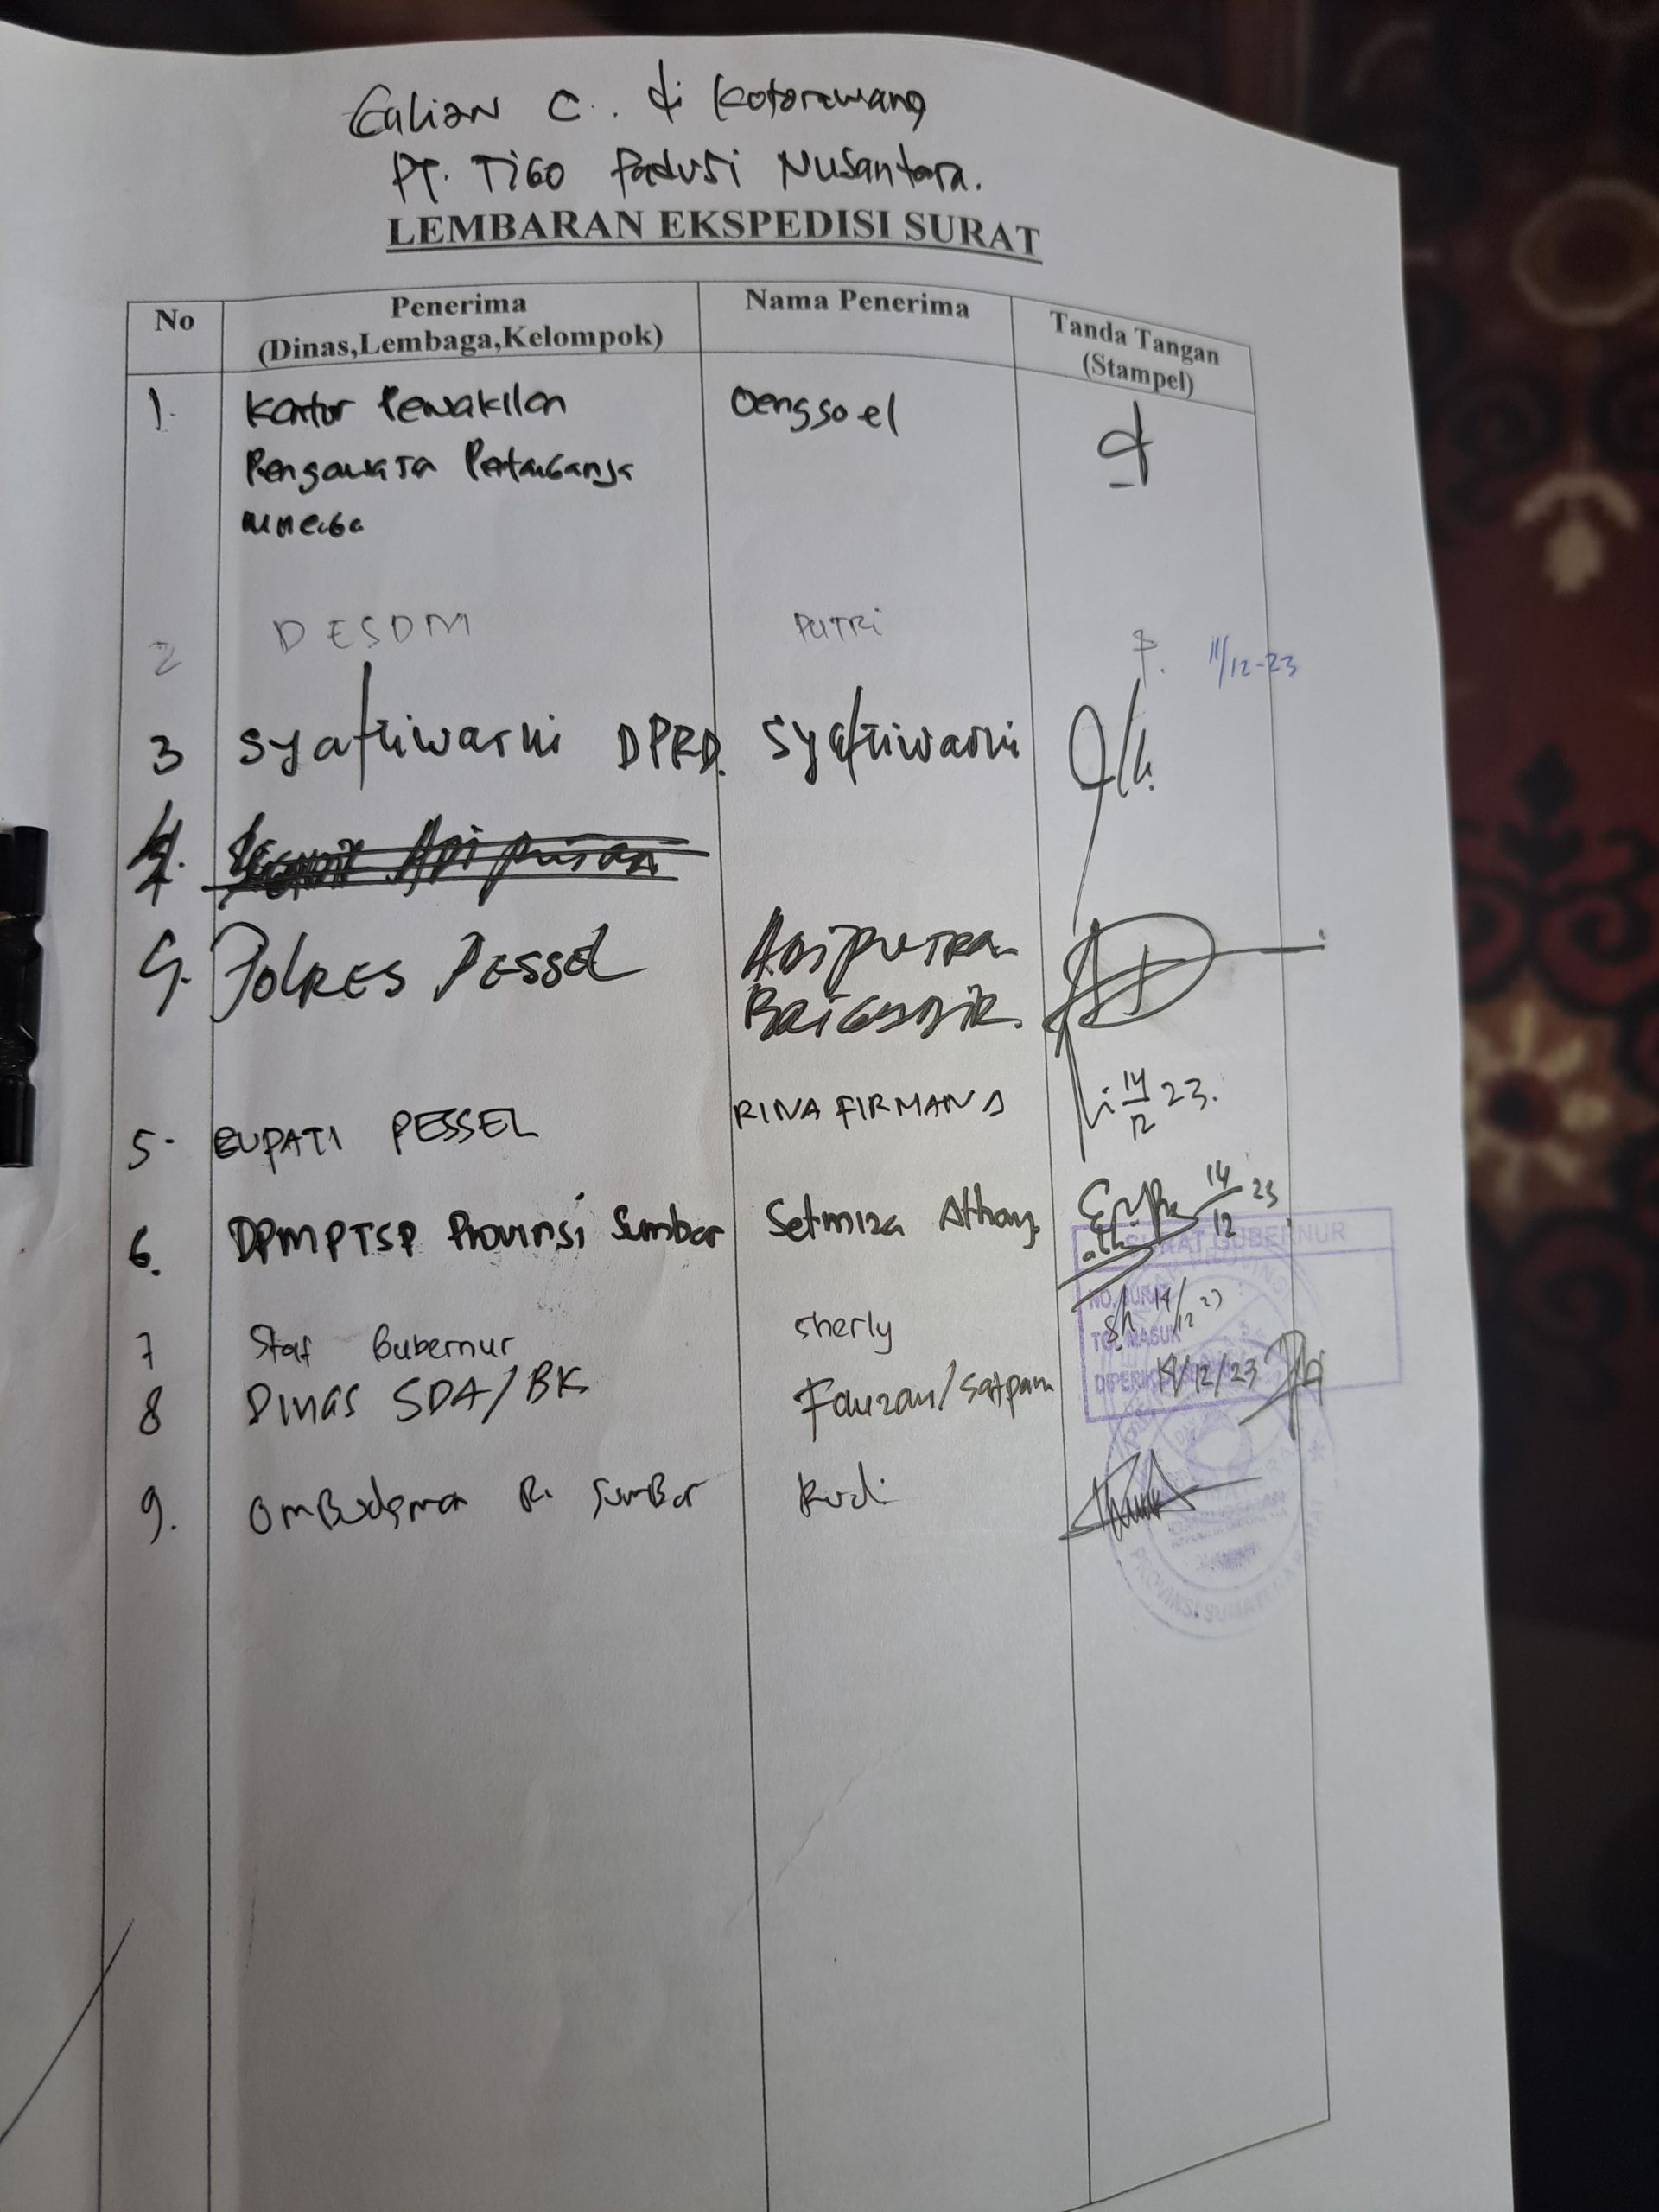 Galian C. di Kotorawang
PT. TIGO Padusi Nusantara.
LEMBARAN EKSPEDISI SURAT
No Penerima (Dinas,Lembaga,Kelompok) Nama Penerima Tanda Tangan (Stampel)
1. Kantor Pewakilan Oengsoel
Pengawasa Pertambangan
minerba
2 DESDM PUTRI P. 11/12-23
3 Syafriwarni DPRD. Syafriwarni
4.
4. POLRES PESSEL ADIPUTRA
BRIGADIR.
5. BUPATI PESSEL RINA FIRMANA 14/12 23.
6. DPMPTSP Provinsi Sumbar Setmiza Athay 14/12 23
SURAT GUBERNUR
NO. SURAT
TGL MASUK
7 Staf Gubernur Sherly Sh 14/12 23
8 Dinas SDA/BK Fauzan/Satpam 14/12/23
9. Ombudsman RI Sumbar Rudi
PROVINSI SUMATERA